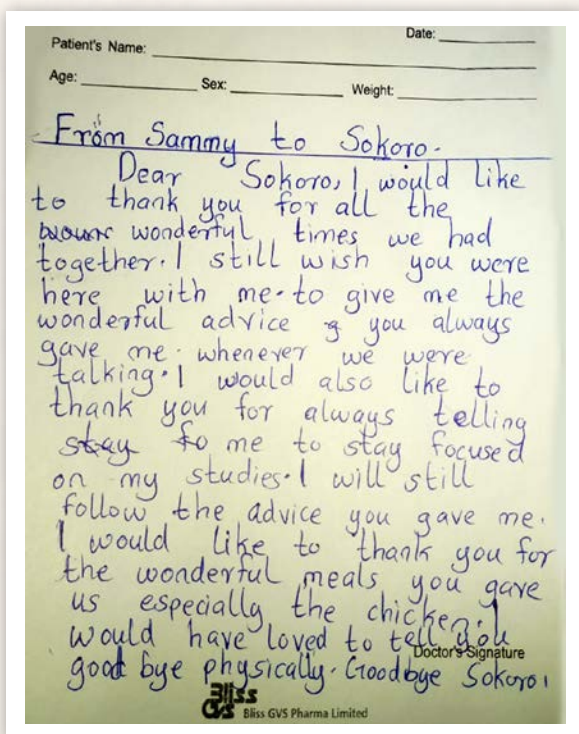 Date:
Patient's Name:
Age: Sex: Weight:
From Sammy to Sokoro.
Dear Sokoro, I would like
to thank you for all the
wonderful times we had
together. I still wish you were
here with me. to give me the
wonderful advice you always
gave me. whenever we were
talking. I would also like to
thank you for always telling
stay fo me to stay focused
on my studies. I will still
follow the advice you gave me.
I would like to thank you for
the wonderful meals you gave
us especially the chicken. I
would have loved to tell you
Doctor's Signature
good bye physically. Goodbye Sokoro.
Bliss
GVS Bliss GVS Pharma Limited